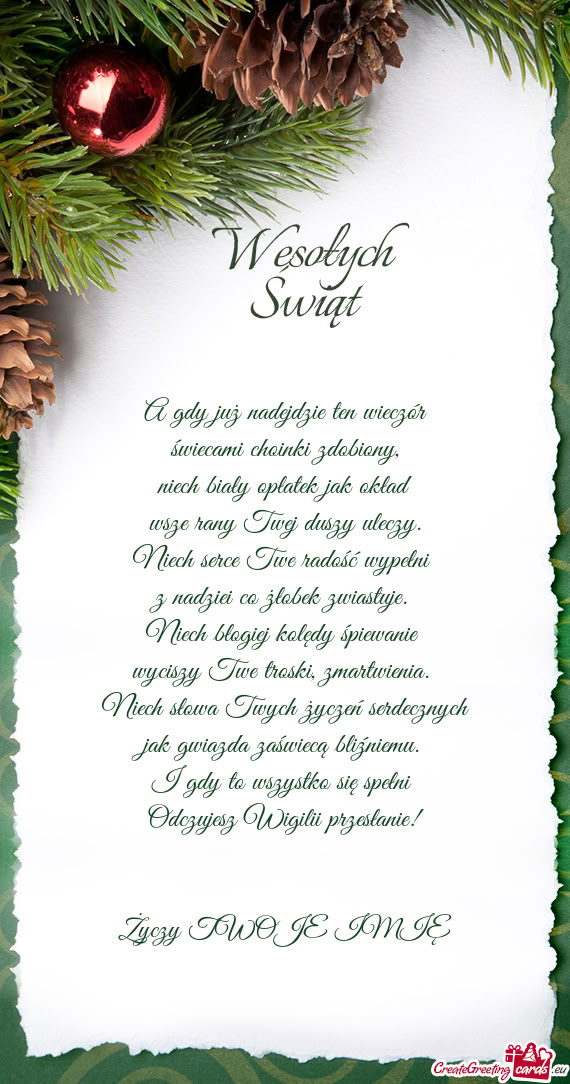 Wesołych
Świąt
A gdy już nadejdzie ten wieczór
świecami choinki zdobiony,
niech biały opłatek jak okład
wsze rany Twej duszy uleczy.
Niech serce Twe radość wypełni
z nadziei co żłobek zwiastuje.
Niech błogiej kolędy śpiewanie
wyciszy Twe troski, zmartwienia.
Niech słowa Twych życzeń serdecznych
jak gwiazda zaświecą bliźniemu.
I gdy to wszystko się spełni
Odczujesz Wigilii przesłanie!
Życzy TWOJE IMIĘ
CreateGreetingcards.eu